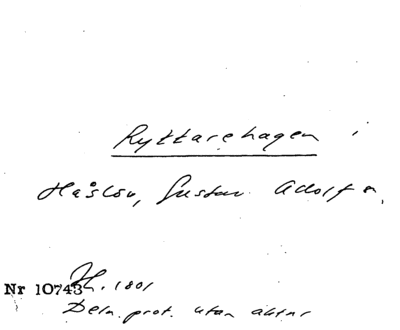 Ryttarehagen i
Håslöv, Gustav Adolf s,
Nr 10743
H. 1801
Deln. prot. utan aktnr